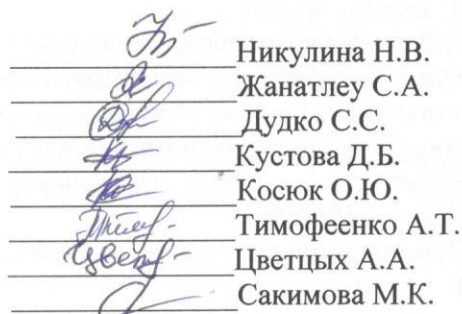 Никулина Н.В.
Жанатлеу С.А.
Дудко С.С.
Кустова Д.Б.
Косюк О.Ю.
Тимофеенко А.Т.
Цветцых А.А.
Сакимова М.К.